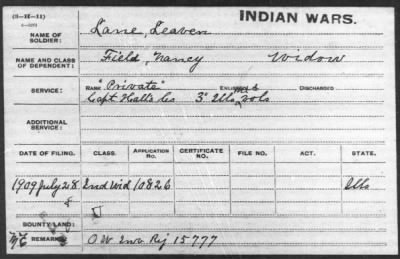 (3-XX-11)
INDIAN WARS.
NAME OF SOLDIER: Lane, Leaven
NAME AND CLASS OF DEPENDENT: Field, Nancy Widow
SERVICE: RANK "Private" ENLISTED DISCHARGED
Capt Halls Co 3" Ills vols
ADDITIONAL SERVICE:
DATE OF FILING. CLASS. APPLICATION No. CERTIFICATE No. FILE NO. ACT. STATE.
1909 July 28 2nd Wid 10826 Ills
BOUNTY LAND:
REMARKS: O.W. Inv Rej 15777